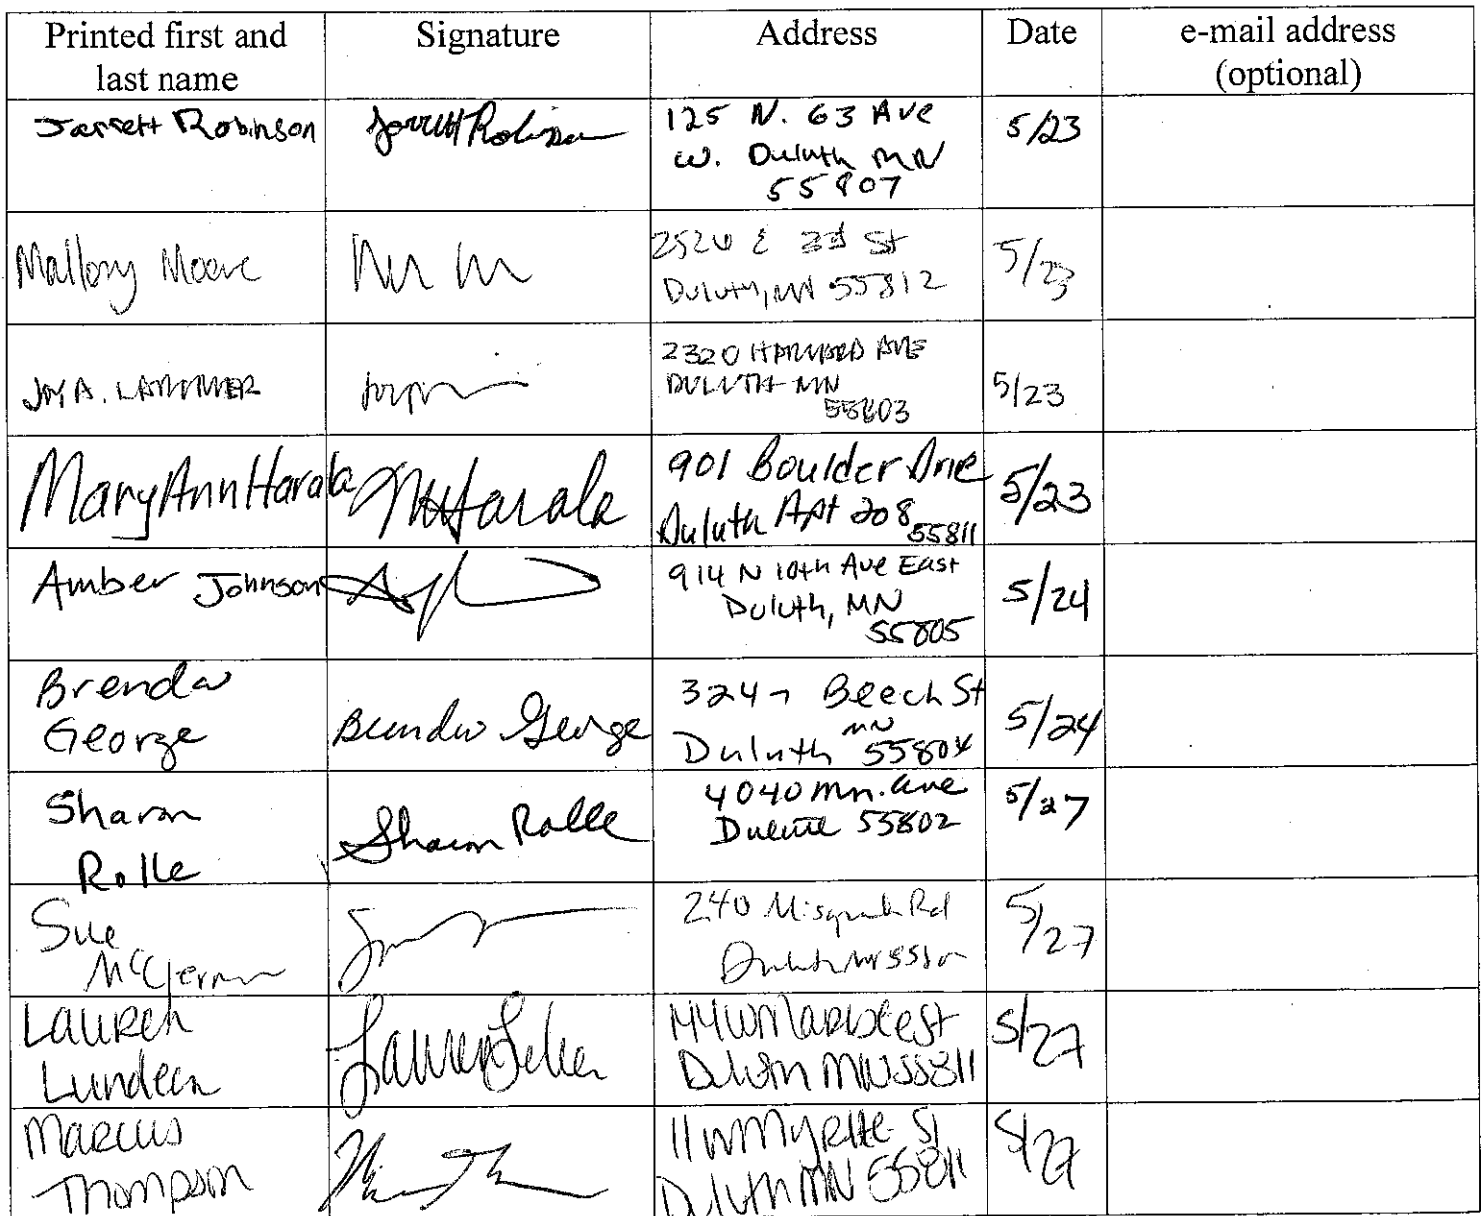 Printed first and last name Signature Address Date e-mail address (optional)
Jarrett Robinson Jarrett Robinson 125 N. 63 Ave 5/23
W. Duluth MN
55807
Mallory Moore 2520 E 3rd St 5/23
Duluth, MN 55812
Joy A. 2320 HARVARD AVE 5/23
DULUTH MN
55803
Mary Ann Harala MHarala 901 Boulder Drive 5/23
Duluth Apt 208 55811
Amber Johnson 914 N 10th Ave East 5/24
Duluth, MN
55805
Brenda George Brenda George 3247 Beech St 5/24
MN
Duluth 55804
Sharon Rolle Sharon Rolle 4040 mn. ave 5/27
Duluth 55802
Sue 240 Rd 5/27
Duluth
Lauren Lundeen Lauren Marble St 5/27
Duluth MN 55811
Marcus Thompson 11 W Myrtle St 5/27
Duluth MN 55811